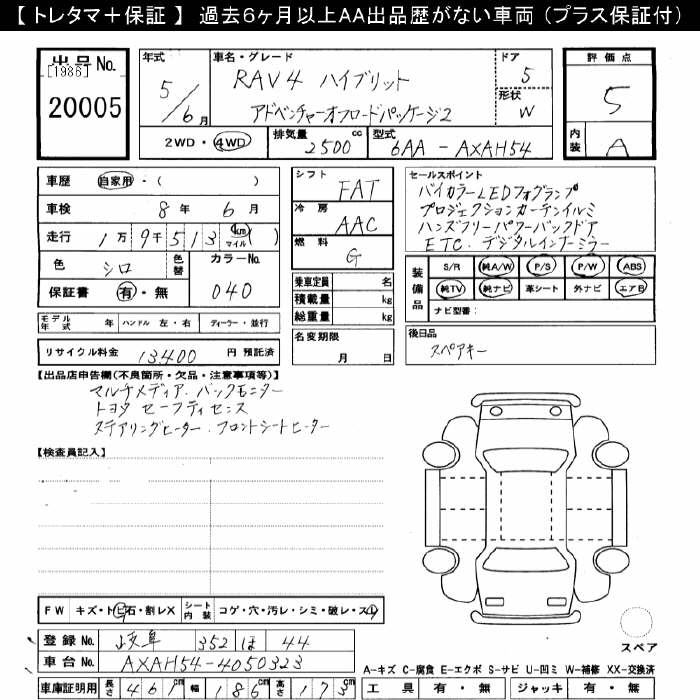 【 トレタマ＋保証 】 過去6ヶ月以上AA出品歴がない車両（プラス保証付）
出品 No.
[1986]
20005
年式
5/6月
車名・グレード
RAV4 ハイブリット
アドベンチャーオフロードパッケージ2
ドア
5
形状
W
評価点
5
内装
A
2WD・4WD
排気量
2500 cc
型式
6AA - AXAH54
車歴 自家用・( )
車検 8年 6月
走行 1万9千513 km マイル ( )
色 シロ
色替
カラーNo. 040
保証書 有・無
モデル年式 年 ハンドル 左・右 ディーラー・並行
リサイクル料金 13400 円 預託済
シフト FAT
冷房 AAC
燃料 G
乗車定員 名
積載量 kg
総重量 kg
名変期限
月 日
セールスポイント
バイカラーLEDフォグランプ
プロジェクションカーテンイルミ
ハンズフリーパワーバックドア
ETC. デジタルインナーミラー
装備品
S/R 純A/W P/S P/W ABS
純TV 純ナビ 革シート 外ナビ エアB
ナビ型番：
後日品
スペアキー
【出品店申告欄(不良箇所・欠品・注意事項等)】
マルチメディア. バックモニター
トヨタ セーフティセンス
ステアリングヒーター. フロントシートヒーター
【検査員記入】
FW キズ・トビ石・割レX
シート内装 コゲ・穴・汚レ・シミ・破レ・スレ
登録 No. 岐阜 352 ほ 44
車台 No. AXAH54-4050323
車庫証明用 長さ 461cm 幅 186cm 高さ 173cm
スペア
A-キズ C-腐食 E-エクボ S-サビ U-凹ミ W-補修 XX-交換済
工具 有・無 ジャッキ 有・無